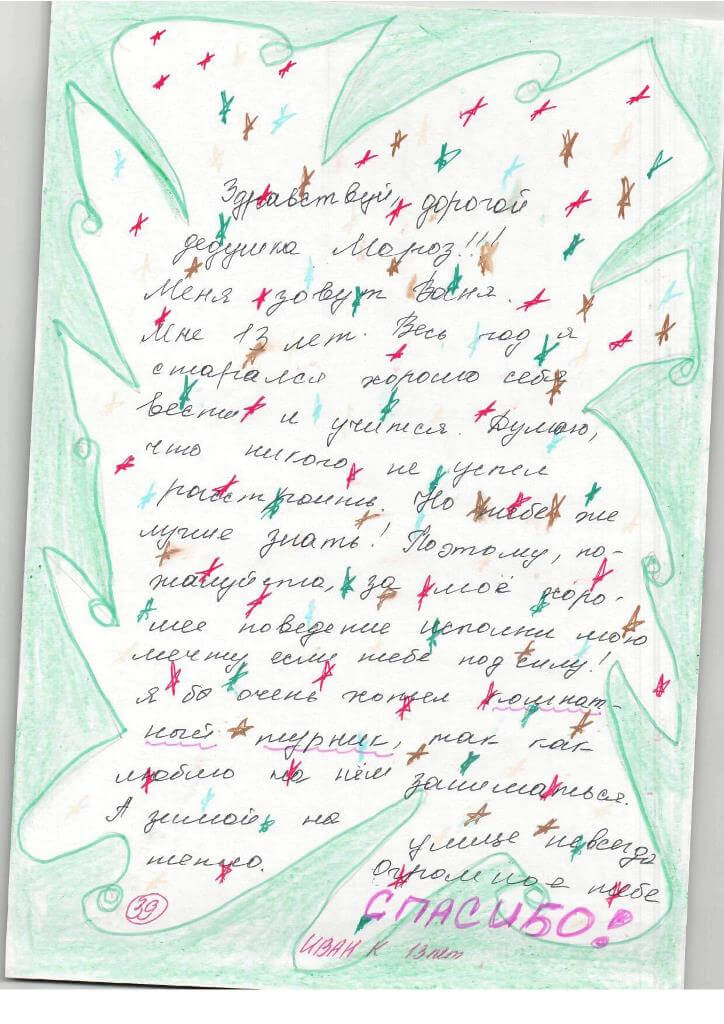 Здравствуй, дорогой
дедушка Мороз!!!
Меня зовут Ваня.
Мне 13 лет. Весь год я
старался хорошо себя
вести и учится. Думаю,
что никого не успел
расстроить. Но тебе же
лучше знать! Поэтому, по-
жалуйста, за моё хоро-
шее поведение исполни мою
мечту если тебе под силу!
Я бы очень хотел комнат-
ный турник, так как
люблю на нём заниматься.
А зимой на улице не всегда
тепло. Огромное тебе
СПАСИБО!
39
ИВАН К 13 лет